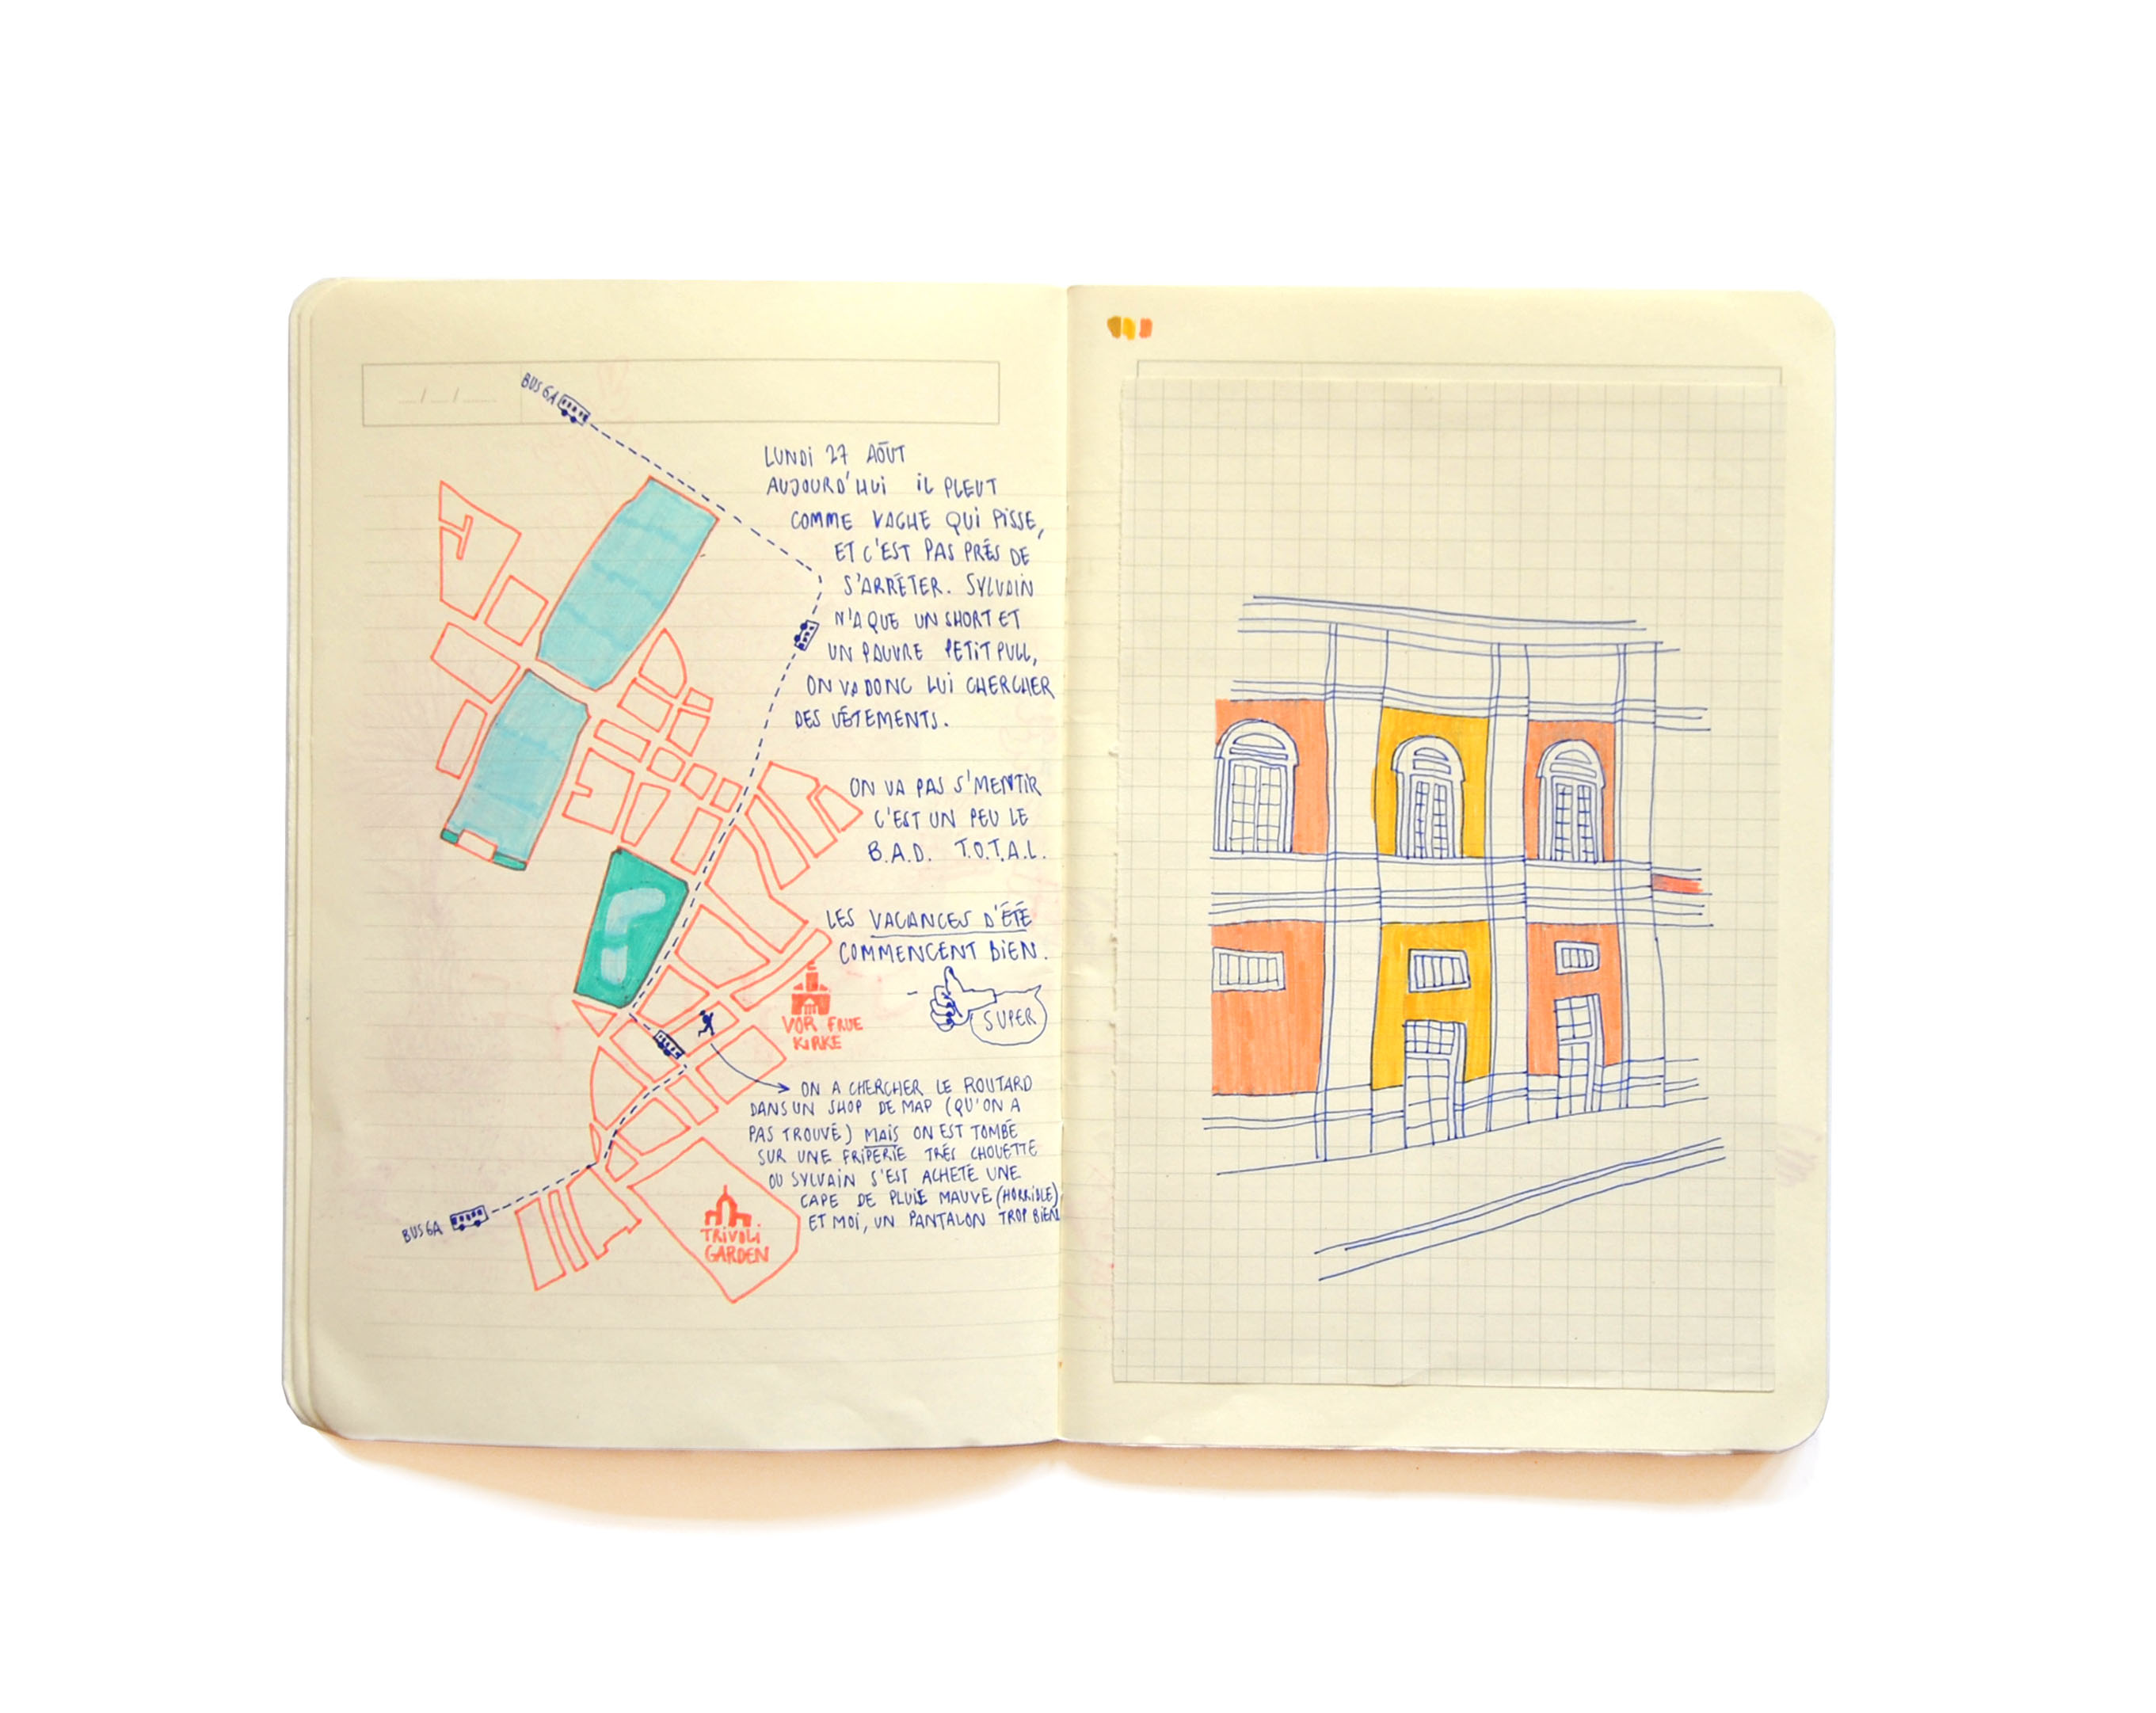 BUS 6A
LUNDI 27 AÔUT
AUJOURD'HUI IL PLEUT
COMME VACHE QUI PISSE,
ET C'EST PAS PRÉS DE
S'ARRÊTER. SYLVAIN
N'A QUE UN SHORT ET
UN PAUVRE PETIT PULL,
ON VA DONC LUI CHERCHER
DES VÊTEMENTS.
ON VA PAS S'MENTIR
C'EST UN PEU LE
B.A.D. T.O.T.A.L.
LES VACANCES D'ÉTÉ
COMMENCENT BIEN.
SUPER
VOR FRUE
KIRKE
ON A CHERCHER LE ROUTARD
DANS UN SHOP DE MAP (QU'ON A
PAS TROUVÉ) MAIS ON EST TOMBÉ
SUR UNE FRIPERIE TRÉS CHOUETTE
OU SYLVAIN S'EST ACHETÉ UNE
CAPE DE PLUIE MAUVE (HORRIBLE)
ET MOI, UN PANTALON TROP BIEN
BUS 6A
TRIVOLI
GARDEN